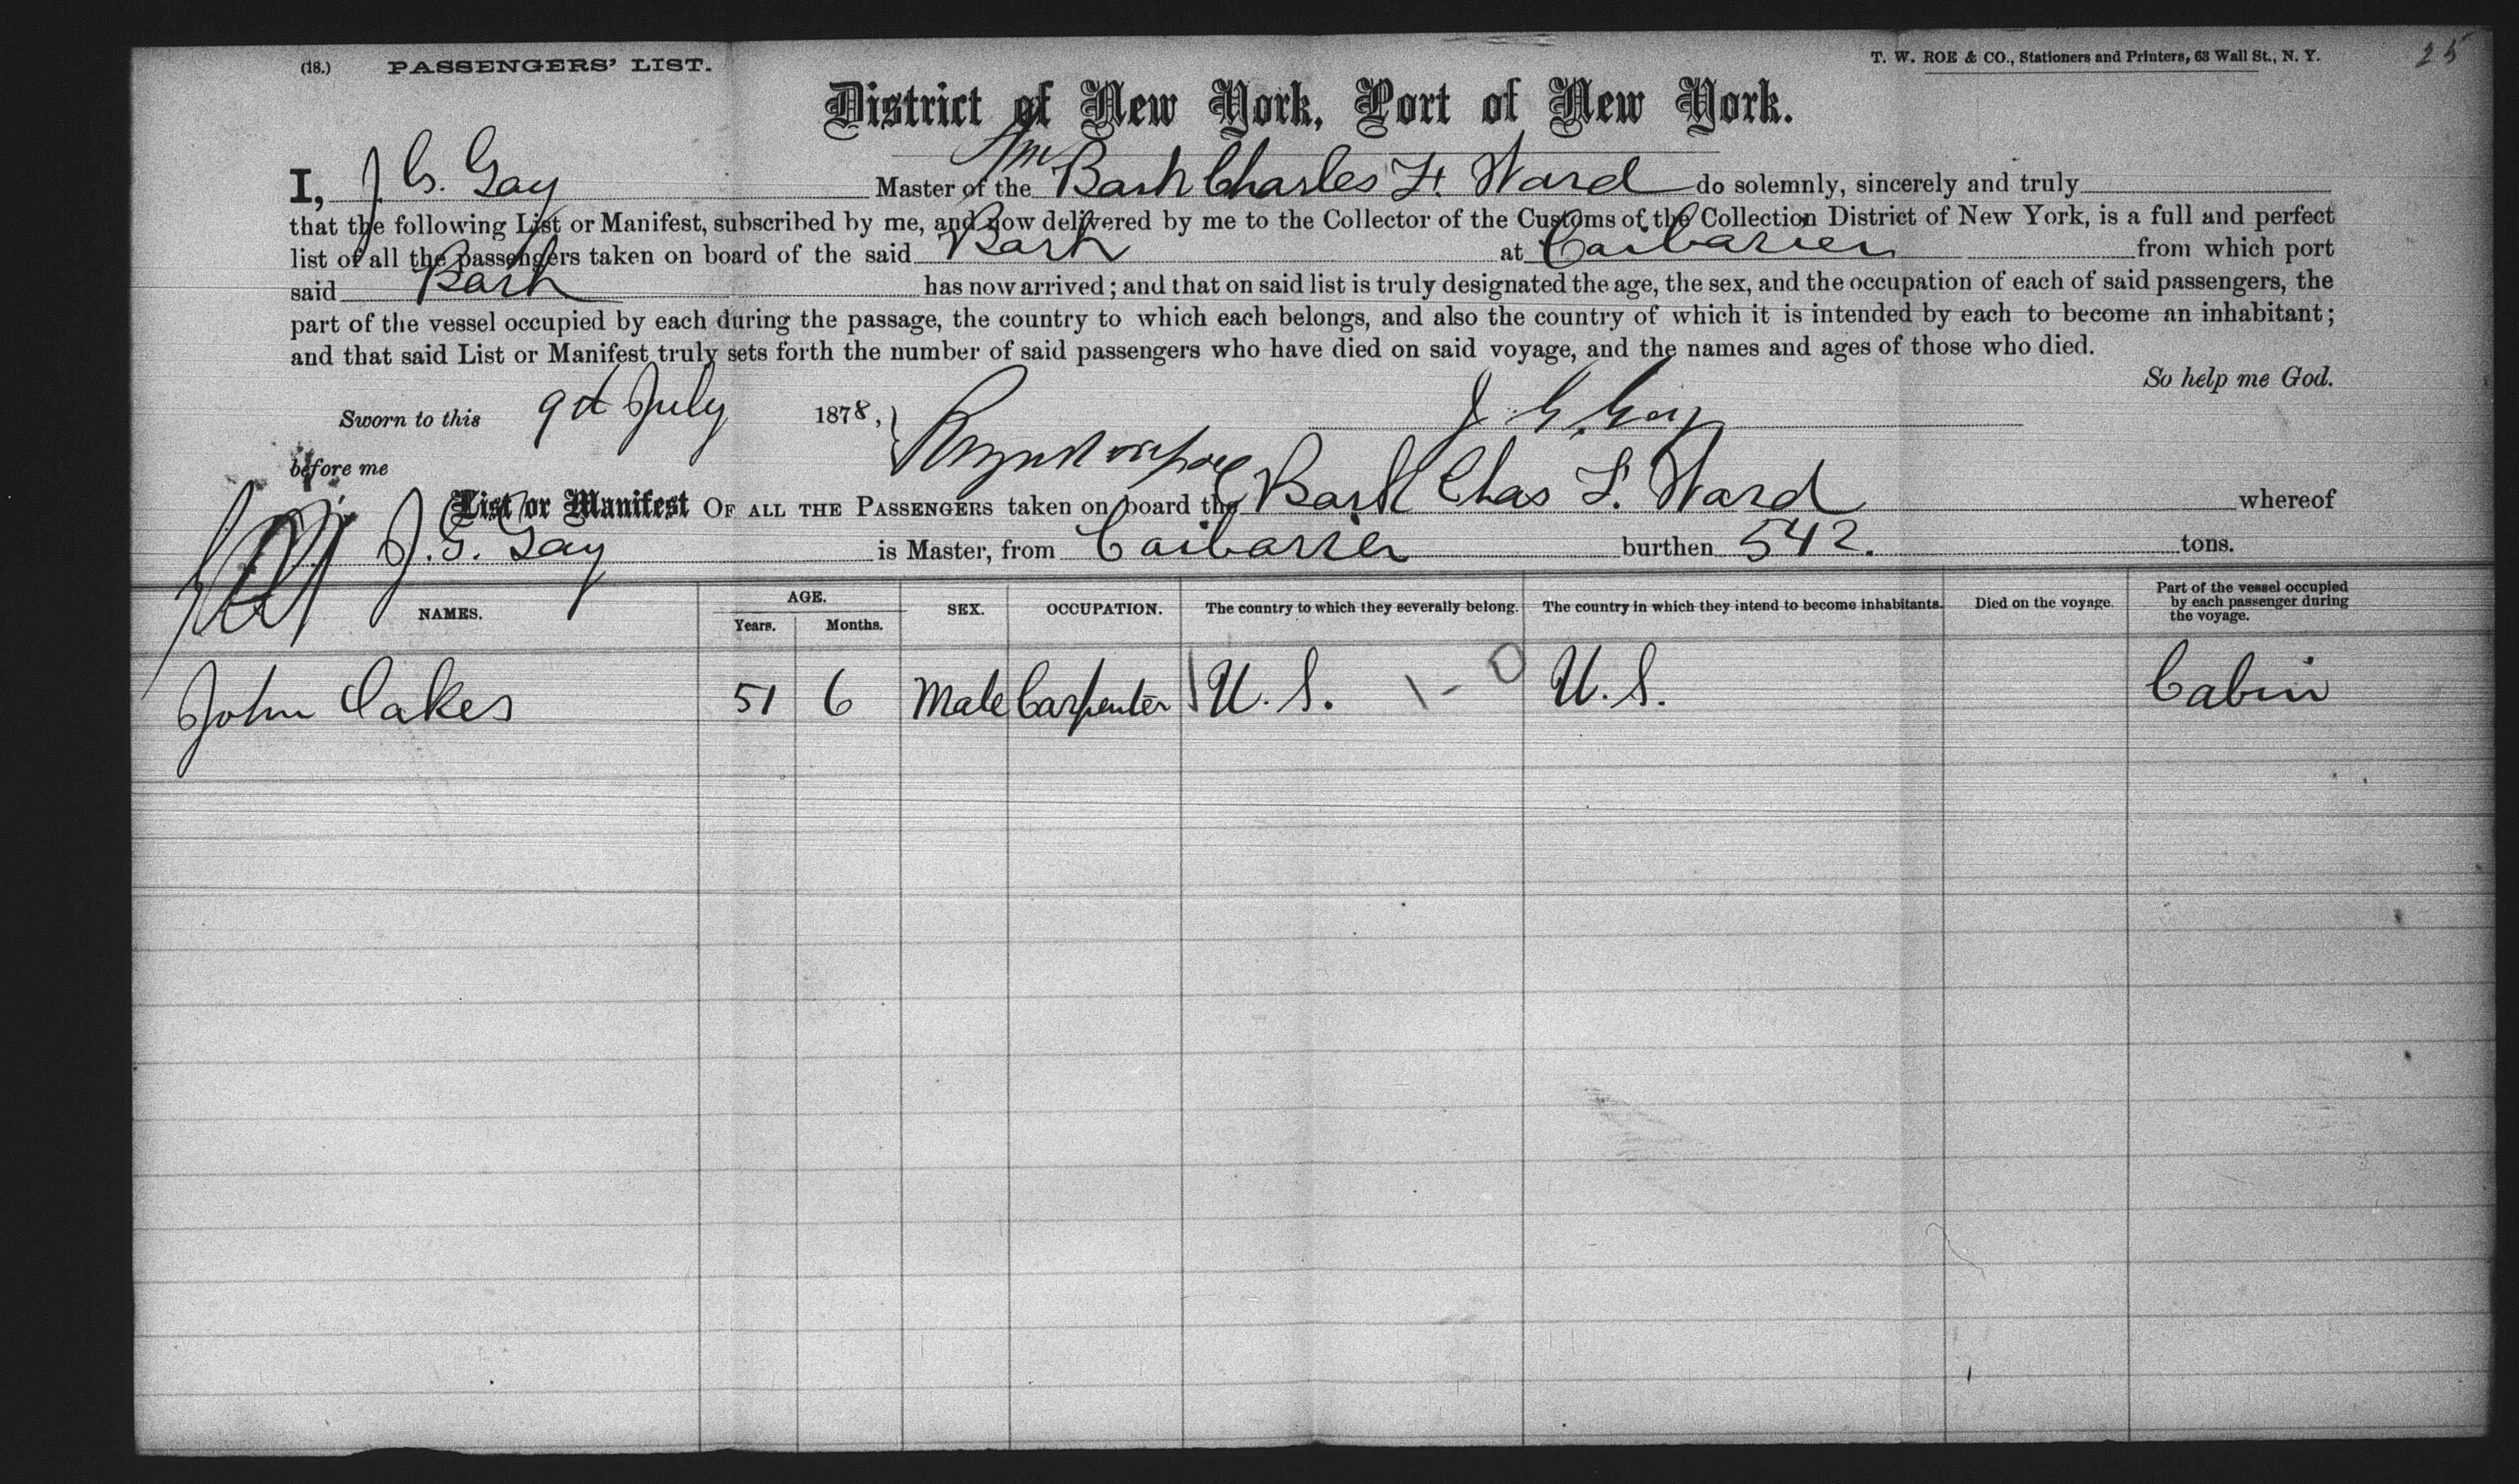 (18.) PASSENGERS' LIST.
T. W. ROE & CO., Stationers and Printers, 63 Wall St., N. Y.
25
District of New York, Port of New York.
I, J. G. Gay Master of the Am Bark Charles F. Ward do solemnly, sincerely and truly
that the following List or Manifest, subscribed by me, and now delivered by me to the Collector of the Customs of the Collection District of New York, is a full and perfect
list of all the passengers taken on board of the said Bark at Caibarien from which port
said Bark has now arrived; and that on said list is truly designated the age, the sex, and the occupation of each of said passengers, the
part of the vessel occupied by each during the passage, the country to which each belongs, and also the country of which it is intended by each to become an inhabitant;
and that said List or Manifest truly sets forth the number of said passengers who have died on said voyage, and the names and ages of those who died.
So help me God.
Sworn to this 9th July 1878, J. G. Gay
before me
List or Manifest OF ALL THE PASSENGERS taken on board the Bark Chas F. Ward whereof
J. G. Gay is Master, from Caibarien burthen 542. tons.
NAMES. AGE. Years. Months. SEX. OCCUPATION. The country to which they severally belong. The country in which they intend to become inhabitants. Died on the voyage. Part of the vessel occupied by each passenger during the voyage.
John Oakes 51 6 Male Carpenter U. S. 1 - 0 U. S. Cabin